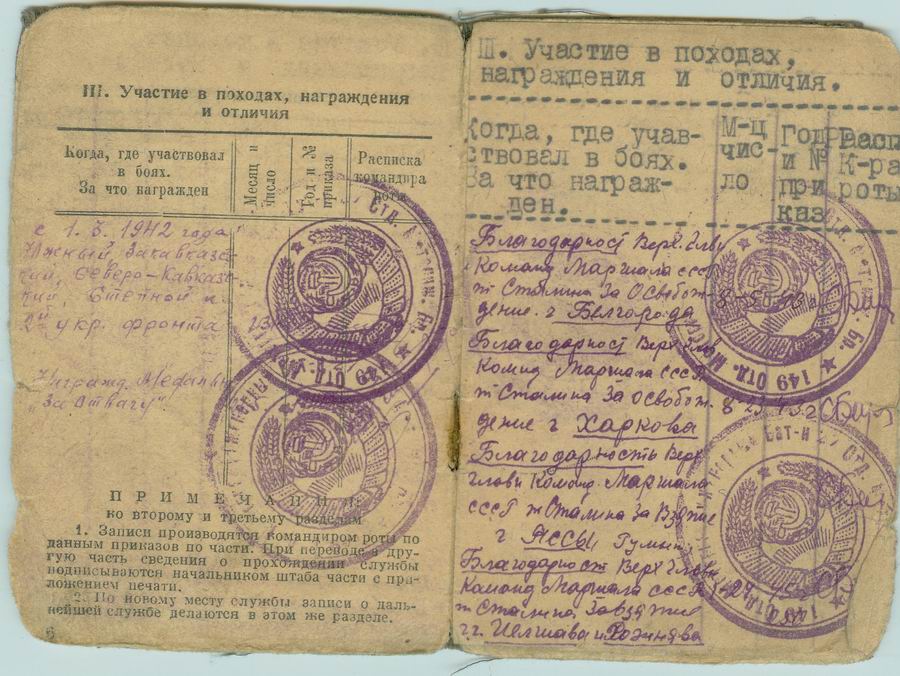 III. Участие в походах, награждения
и отличия
Когда, где участвовал
в боях.
За что награжден
Месяц и
число
Год и №
приказа
Расписка
командира
роты
с 1.3.1942 года
Южный, Закавказс
кий, Северо-Кавказс
кий, Степной и
2й укр. фронта
Награжд. Медалью
"За Отвагу".
ПРИМЕЧАНИЕ
ко второму и третьему разделам
1. Записи производятся командиром роты по
данным приказов по части. При переводе в дру-
гую часть сведения о прохождении службы
подписываются начальником штаба части с при-
ложением печати.
2. По новому месту службы записи о даль-
нейшей службе делаются в этом же разделе.
6
III. Участие в походах,
награждения и отличия.
Когда, где учав-
ствовал в боях.
За что награж-
ден.
М-ц
чис-
ло
Год
и №
при
каз
Расп
К-ра
роты
Благодарност Верх. Глав
Команд Маршала ссср
т Сталина За Освобож-
дение. г Белгорода
Благодарност Верх Глав
Команд Маршала СССР
т Сталина За Освобож-
дение г Харкова
Благодарность Верх
главн Команд. Маршала
ссср т Сталина За Взятие
г Яссы
Благодарност Верх Главн
Команд Маршала СССР
т Сталина За взятие
г.г. и Рожнява
149 ОТД.
149 ОТД.
149 ОТД.